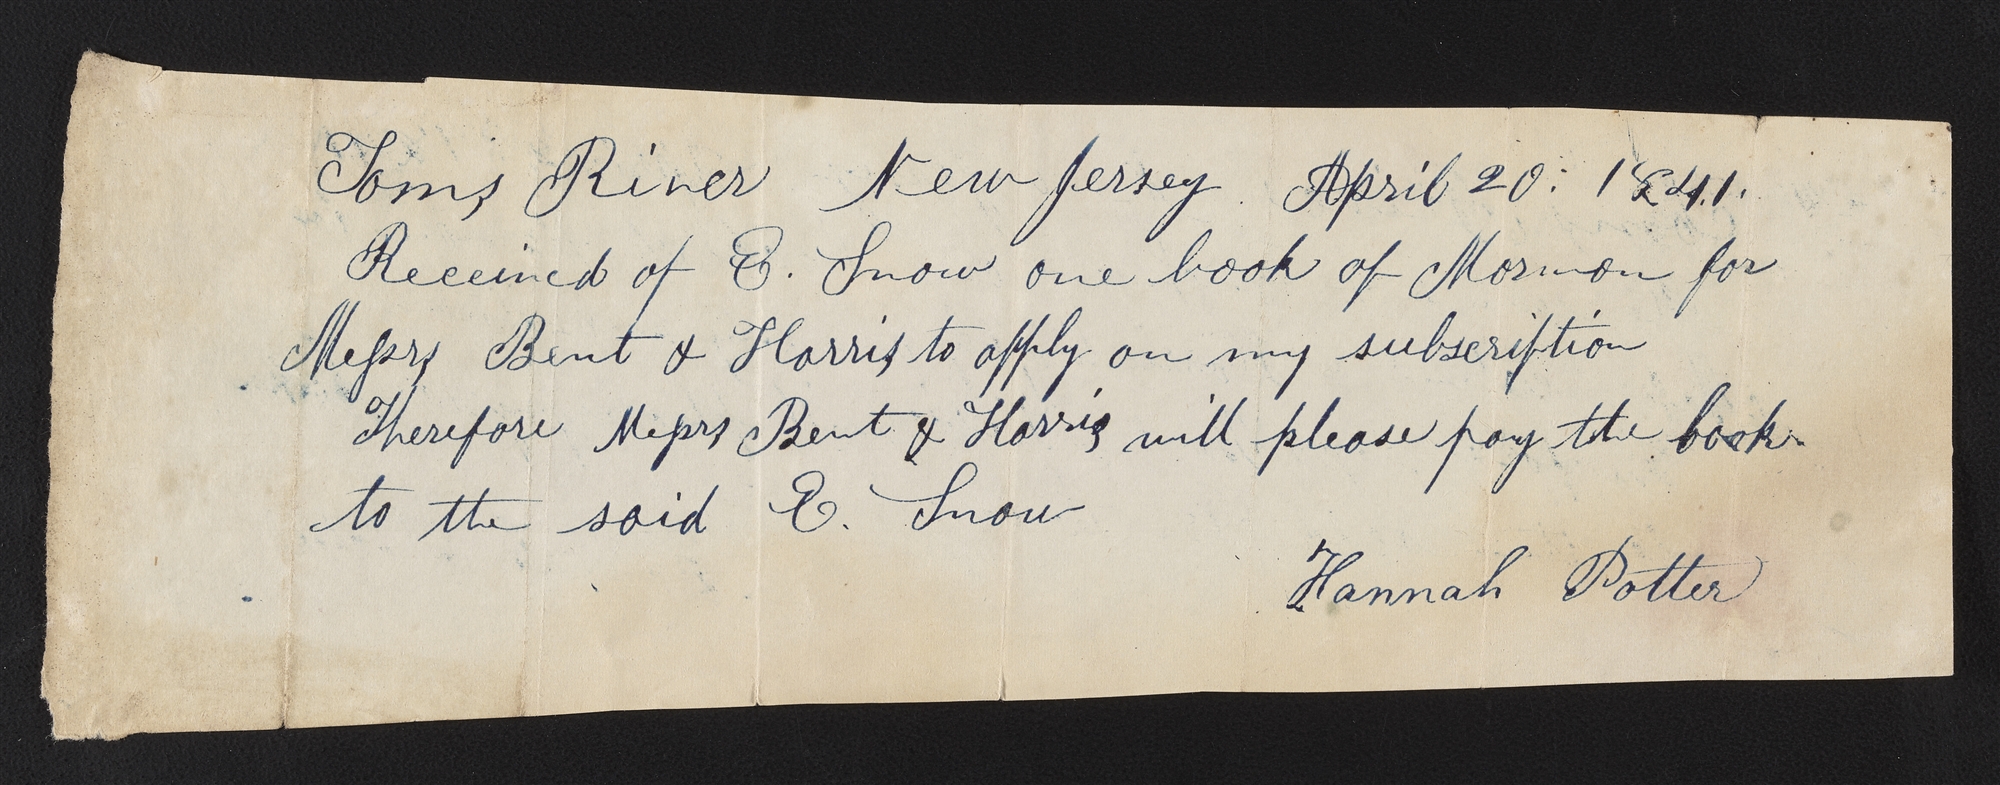 Toms River New Jersey April 20: 1841.
Received of E. Snow one book of Mormon for
Messrs Bent & Harris to apply on my subscription
Therefore Messrs Bent & Harris will please pay the book
to the said E. Snow
Hannah Potter